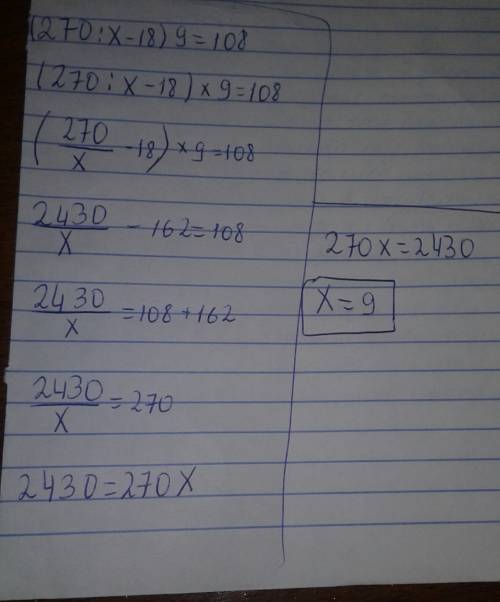 (270:X-18) 9=108
(270:X-18)×9=108
(270/X -18)×9=108
2430/X - 162=108
2430/X =108+162
2430/X = 270
2430=270X
270X=2430
X=9